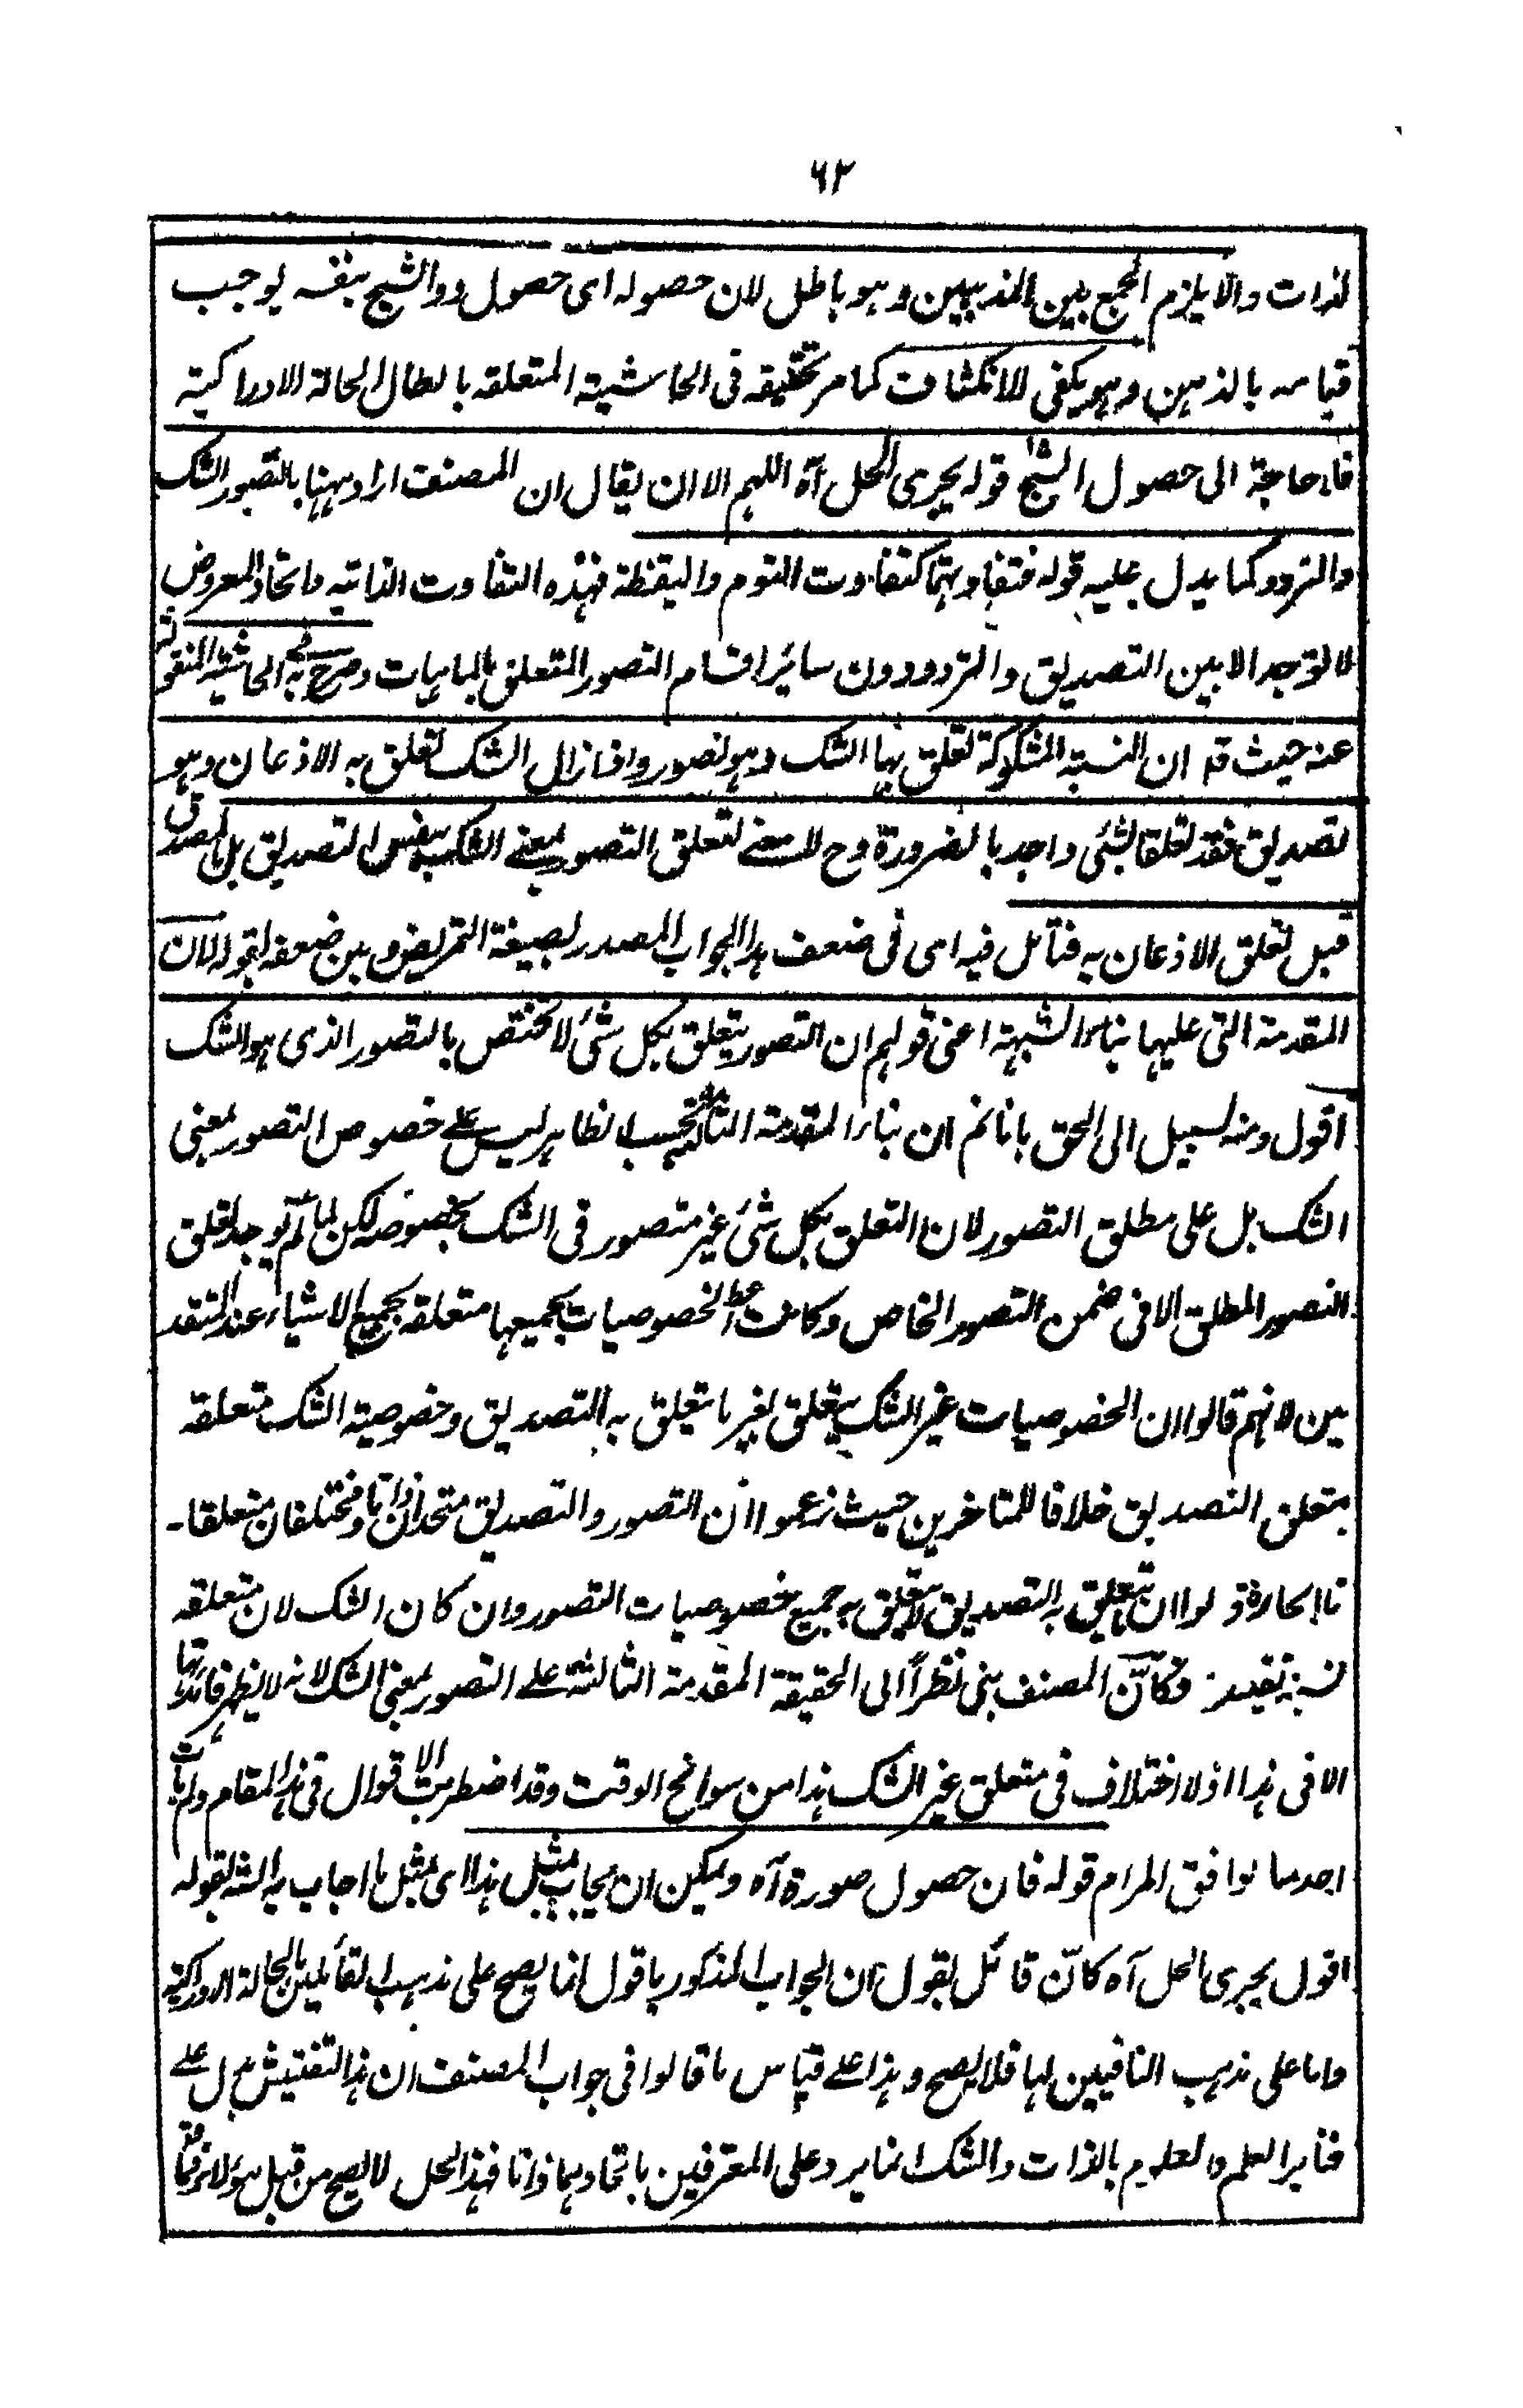 ٦٢
لذات والا يلزم الجمع بين المذهبين وهو باطل لان حصوله اى حصول ذو الشبح بنفسه يوجب
قيامه بالذهن وهو يكفى للانكشاف كما مر تحقيقه فى الحاشية المتعلقه بابطال الحالة الادراكية
فلا حاجة الى حصول الشبح قوله يجرى الحل آه اللهم الا ان يقال ان المصنف اراد ههنا بالتصور الشك
والتردد كما يدل عليه قوله فتفاوتهما كتفاوت النوم واليقظة فهذه التفاوت الذاتية واتحاد المعروض
لا توجد الا بين التصديق والتردد دون سائر اقسام التصور المتعلق بالماهيات وصرح به فى الحاشية المنقولة
عنه حيث قم ان النسبة المشكوكة تعلق بها الشك وهو تصور واذا زال الشك تعلق به الاذعان وهو
تصديق فقد تعلقا بشئ واحد بالضرورة وح لا معنے لتعلق التصور بمعنے الشك بنفس التصديق بل بالمصدق
قبل تعلق الاذعان به فتأمل فيه اى فى ضعف هذا الجواب المصدر بصيغة التمريض وبين ضعفه بقوله لان
المقدمة التى عليها بناء الشبهة اعنى قولهم ان التصور يتعلق بكل شئ لا تختص بالتصور الذى هو الشك
اقول ومنه السبيل الى الحق بانا نم ان بناء المقدمة الثالثة بحسب الظاهر ليس علے خصوص التصور بمعنى
الشك بل على مطلق التصور لان التعلق بكل شئ غير متصور فى الشك بخصوصه لكن لما لم يوجد تعلق
التصور المطلق الا فى ضمن التصور الخاص وكانت الخصوصيات بجميعها متعلقة بجميع الاشياء عند المتقد
مين لانهم قالوا ان الخصوصيات غير الشك يتعلق بغير ما يتعلق به التصديق وخصوصية الشك متعلقه
بمتعلق التصديق خلافا للمتاخرين حيث زعموا ان التصور والتصديق متحدان ذاتا ومختلفان متعلقا۔
قالوا ان ما يتعلق به التصديق لا يتعلق به جميع خصوصيات التصور وان كان الشك لان متعلقه
نسبة تقييدية فكأنّ المصنف بنى نظراً الى الحقيقة المقدمة الثالثة علے التصور بمعنى الشك لانه لا يظهر فائدتها
الا فى هذا اذ لا اختلاف فى متعلق غير الشك هذا من سوانح الوقت وقد اضطربت الاقوال فى هذا المقام ولم يات
احد بما يوافق المرام قوله فان حصول صورة آه ويمكن ان يجاب بمثل هذا اى بمثل ما اجاب به الشه بقوله
اقول يجرى الحل آه كانّ قائل يقول ان الجواب المذكور باقول انما يصح على مذهب القائلين بالحالة الادراكية
واما على مذهب النافيين لها فلا يصح وهذا علے قياس ما قالوا فى جواب المصنف ان هذا التفتيش يدل علے
تغاير العلم والمعلوم بالذات والشك انما يرد على المعترفين باتحادهما ذاتا فهذا الحل لا يصح من قبل هؤلاء